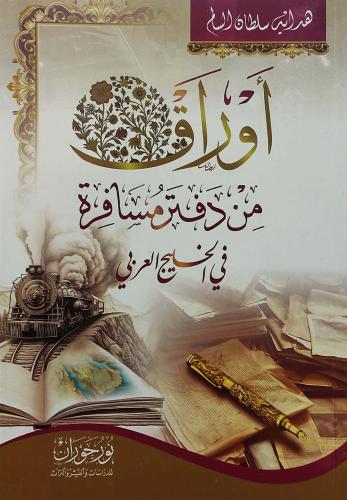 هداية سلطان السالم
أوراق
من دفتر مُسافرة
في الخليج العربي
نور حوران
للدراسات والنشر والتراث